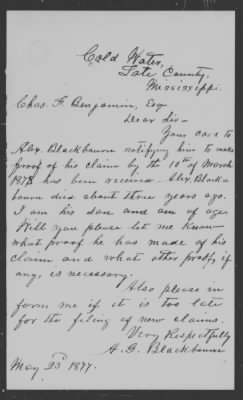 Cold Water,
Tate County,
Mississippi.
Chas. F. Benjamin, Esq
Dear Sir—
Your card to
Alex. Blackbourn notifying him to make
proof of his claim by the 10th of March
1878 has been received. Alex. Black-
bourn died about three years ago.
I am his son and am of age.
Will you please let me know
what proof he has made of his
claim and what other proof, if
any, is necessary.
Also please in
form me if it is too late
for the filing of new claims.
Very Respectfully
A. G. Blackbourn
May 23d 1877.